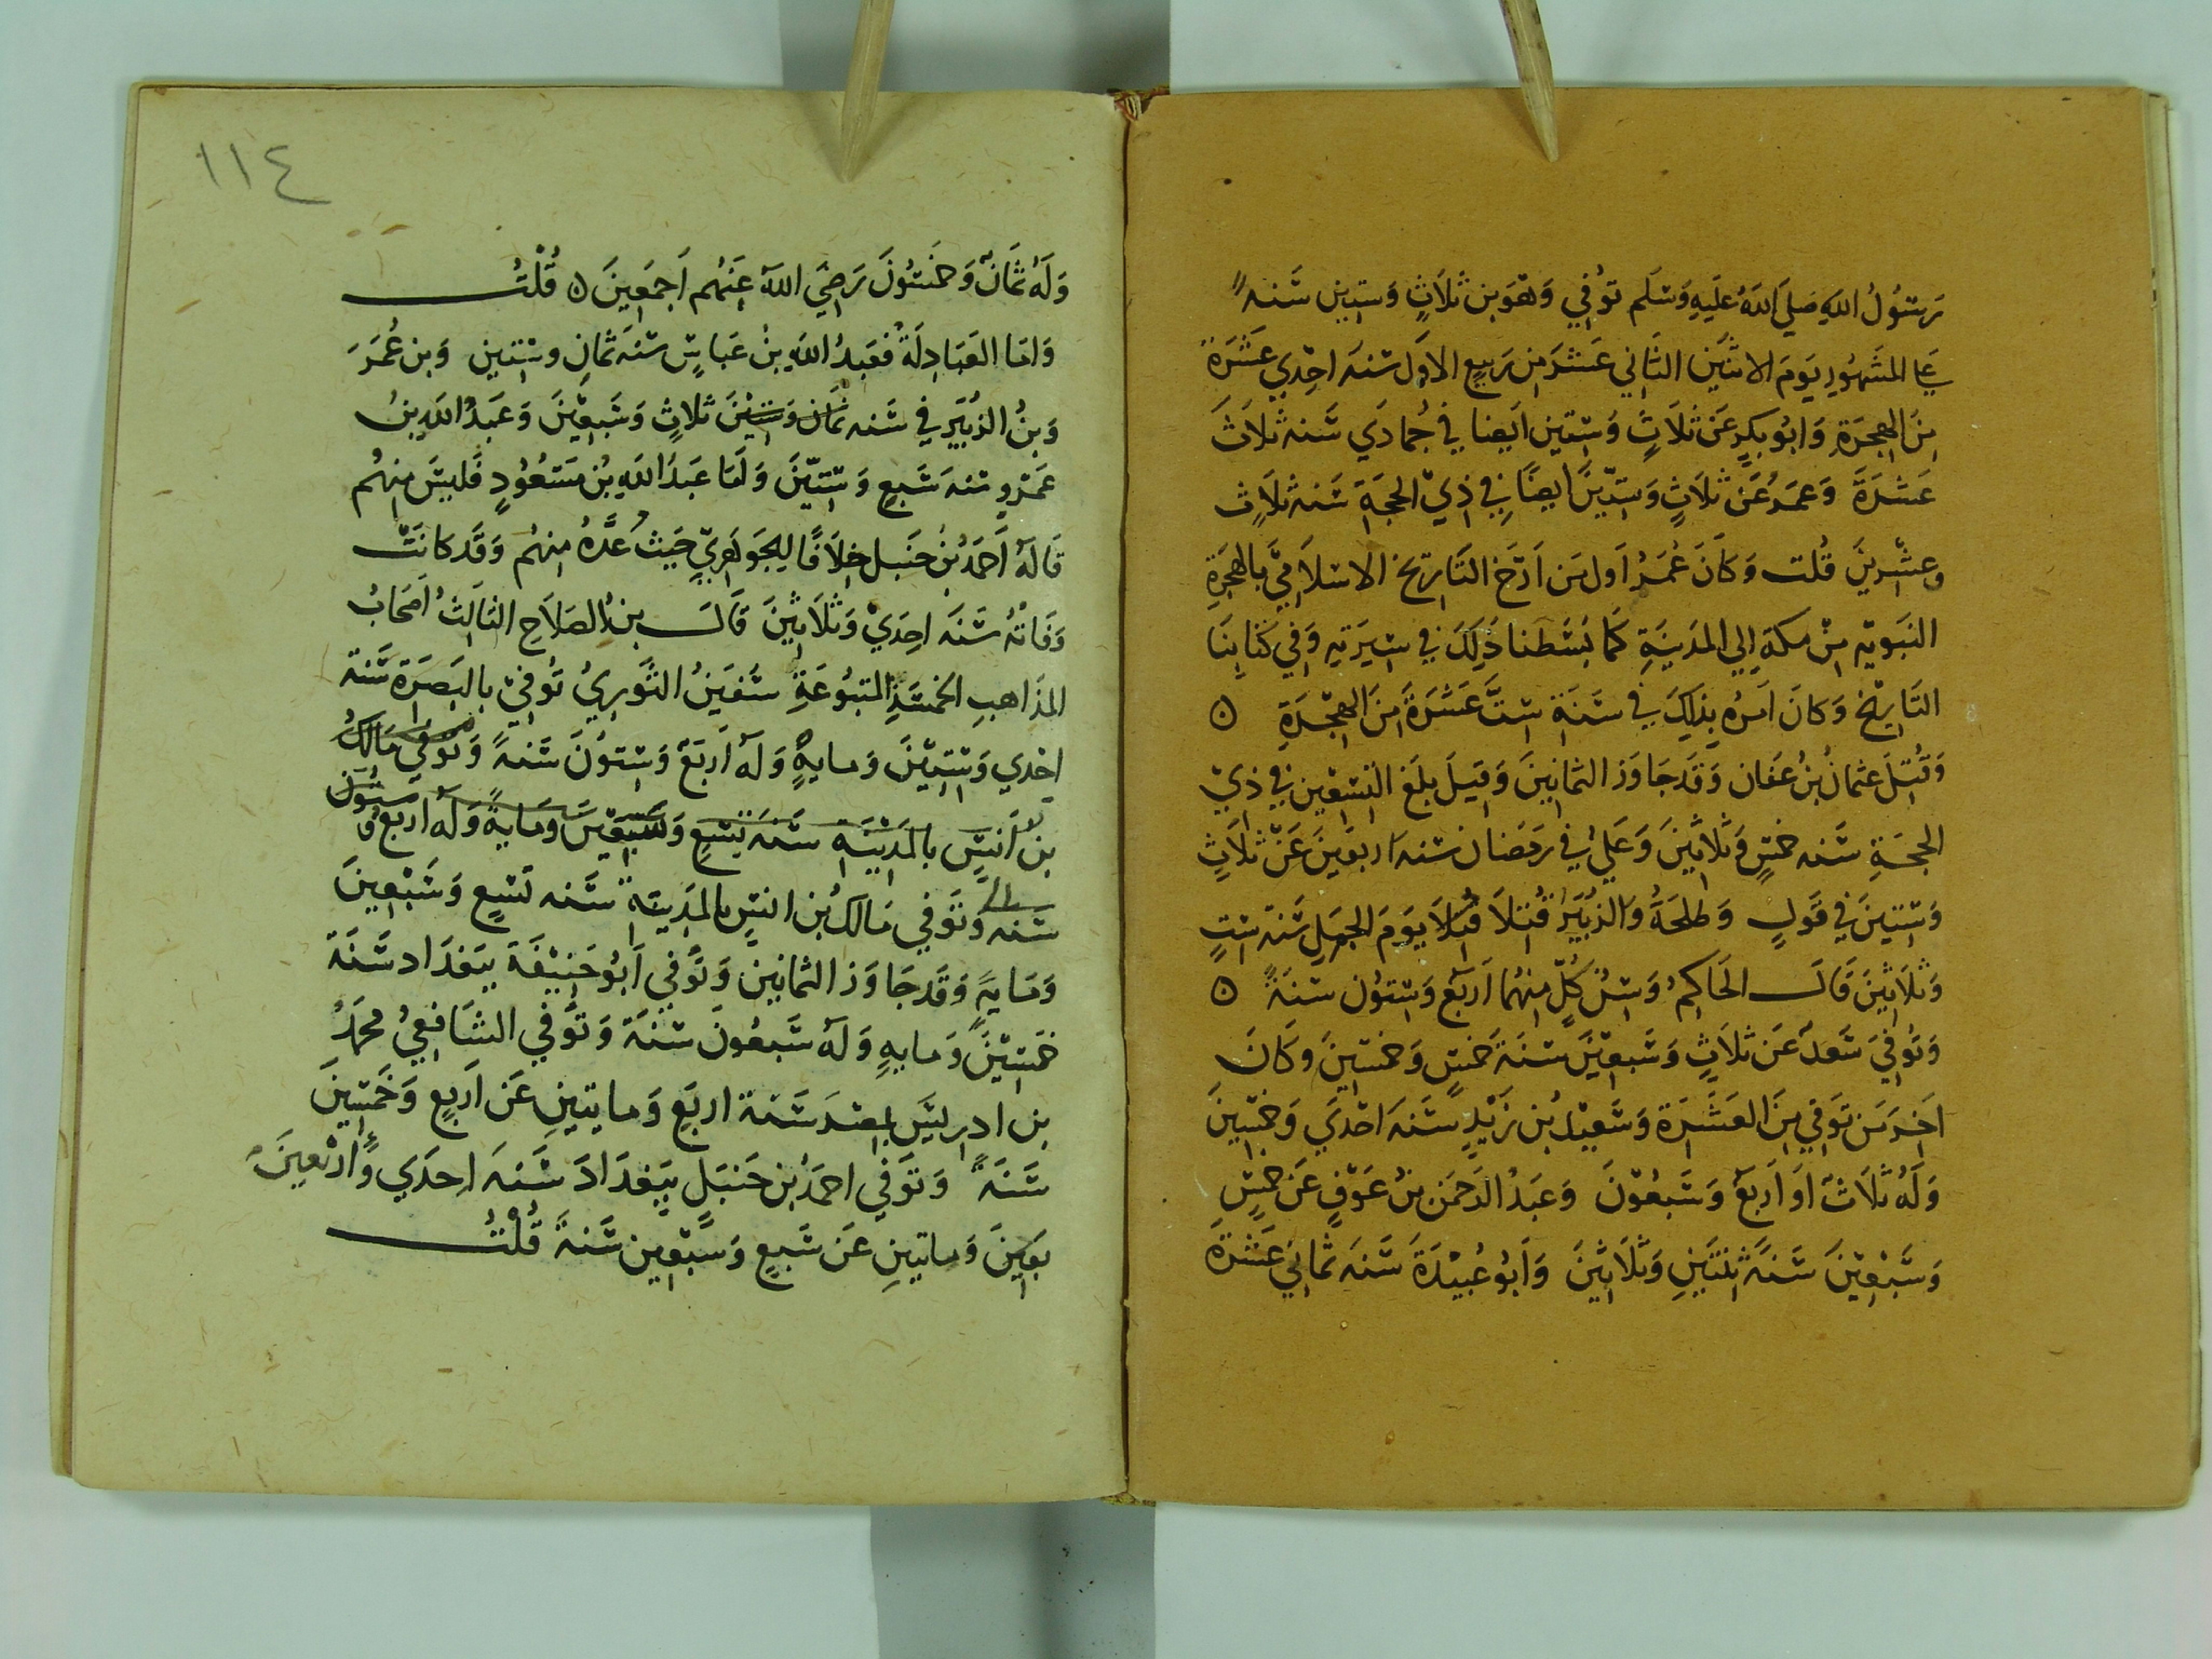 رَسُولُ اللهِ صَلَّي اللهُ عَلَيهِ وَسَلَم تُوُفِي وَهوَ بن ثلَاثٍ وَستِين سَنه
عَلي المَشهُورِ يَومَ الاثنَين الثَاني عَشَر مِن رَبيع الاوَل سَنَه احدِي عَشَرَة
مِنَ الهجرَةِ وَابُو بكرٍ عَن ثلَاثٍ وَستِين ايضا في جُمادَي سَنه ثلَاثَ
عَشرَةَ وَعمَرُ عَن ثلَاثٍ وَستّينَ ايضًا فِي ذِيْ الحجَةِ سَنه ثلَاثٍ
وعشرِينَ قُلت وَكَانَ عُمَرُ اَول مَن اَرَّخ التَاريخ الاسْلاَمِيَّ بالهجرَةِ
النَبَويه مِنْ مكهَ إلي المَدينَةِ كَمَا بَسَطنا ذَلِكَ في سِيرَتِهِ وَفِي كتَابِنَا
التَاريْخ وَكانَ اَمرُه بِذلِكَ في سَنَةِ سِتَّ عَشرَةَ مِنَ الهِجْرَةِ ٥
وَقُتِلَ عثمانُ بنُ عَفان وَقَد جَاوَز الثمانِينَ وَقِيلَ بلَغ التِسعِين في ذِيْ
الحجَةِ سَنه خمسٍ وَثلَاثينَ وَعَليُ في رمَضان سَنه اربعينَ عَنْ ثلَاثٍ
وَستينَ في قَولٍ وَطلحَةُ وَالزُبَيرُ قُتلَا قُتلَا يَومَ الجملِ سَنَة ستٍ
وَثلَاثِينَ قَالَ الحَاكِمُ وَسنُ كُلٍّ مِنهُما اَربَع وَستُون سَنَةً ٥
وَتُوُفِيَ سَعدٌ عَن ثلَاثٍ وَسَبعِيْنَ سَنَةَ خَمسٍ وَخمسِينَ وكَانَ
اَخِرَ مَن تُوَفِي مِنَ العَشَرَة وَسَعِيْدُ بن زَيْدٍ سَنَه احْدَي وَخمسِينَ
وَلَهُ ثلَاثٌ اَو اَربَع وَسَبعُوْنَ وَعَبدُ الرحمَن بنُ عَوْفٍ عَن خمسٍ
وَسَبْعِيْنَ سَنَةَ ثِنتَينِ وَثلَاثِينَ وَاَبُو عُبَيْدَةَ سَنَه ثمانِي عَشْرَةَ
١١٤
وَلَهُ ثمَانٌ وَخَمسُونَ رَضِيَ اللهُ عَنهُم اَجمَعِينَ ٥ قُلْتُ
وَامَا العَبَادِلَةُ فعَبدُ اللهِ بنُ عَباسٍ سَنَه ثمَانٍ وستين وَبن عُمَرَ
وَبنُ الزُبَيَر في سَنه ثمَان وَستينَ ثلاثٍ وَسَبعِيْنَ وَعَبدُ اللهِ بنُ
عَمْرٍو سَنه سَبعٍ وَستينَ وَاَمَا عَبدُ اللهِ بنُ مَسْعُوْدٍ فَليسَ مِنهُم
قَالَهُ اَحمَدُ بنُ حَنبل خِلاَفًا لِلجَوهَرِيِّ حَيثُ عَدَّهُ مِنهُم وَقَد كانَتْ
وَفَاتُهُ سَنَه احِدَيْ وَثلَاثينَ قَالَ بنُ الصَلاحِ الثالِثُ اَصحَابُ
المذَاهبِ الخمسَةِ المتبُوعَةِ سُفيَنُ الثَورِيُ تُوفيْ بالبَصرَة سَنة
احدِي وَستينَ وَمايهٍ وَلَه اَربَع وَستوْنَ سَنةً وَتُوَفِي مَالِكُ
بن اَنسٍ بالمَدينَةِ سَنه تِسْعٍ وَسَبعِيْنَ وَمَايةً وَلَهُ اربَع وَ ستون
سَنه وَتُوَفِي مَالكُ بن انسٍ بالمَدِينَةِ سَنه تَسعٍ وَسَبْعِينَ
وَمَايَةٍ وَقَد جَاوَز الثمانِينَ وَتُوفِي اَبُو حَنِيْفَةَ ببَغدَاد سَنَةَ
خمسِيْنَ وَمايهٍ وَلَهُ سَبعُونَ سَنَة وَتُوَفي الشَافِعيُ محَمدُ
بن ادرِيسَ بمصرَ سَنَة اربَعٍ وَمايتينِ عَن اَربعٍ وَخَمسِينَ
سَنَةً وَتُوَفِي احمَدُ بن حَنبَلٍ ببَغدَادَ سَنَه اِحدَي وَّاربَعِينَ
بَعِينَ وَمايتينِ عَن سَبعٍ وَسَبْعِين سَنةً قُلْتُ